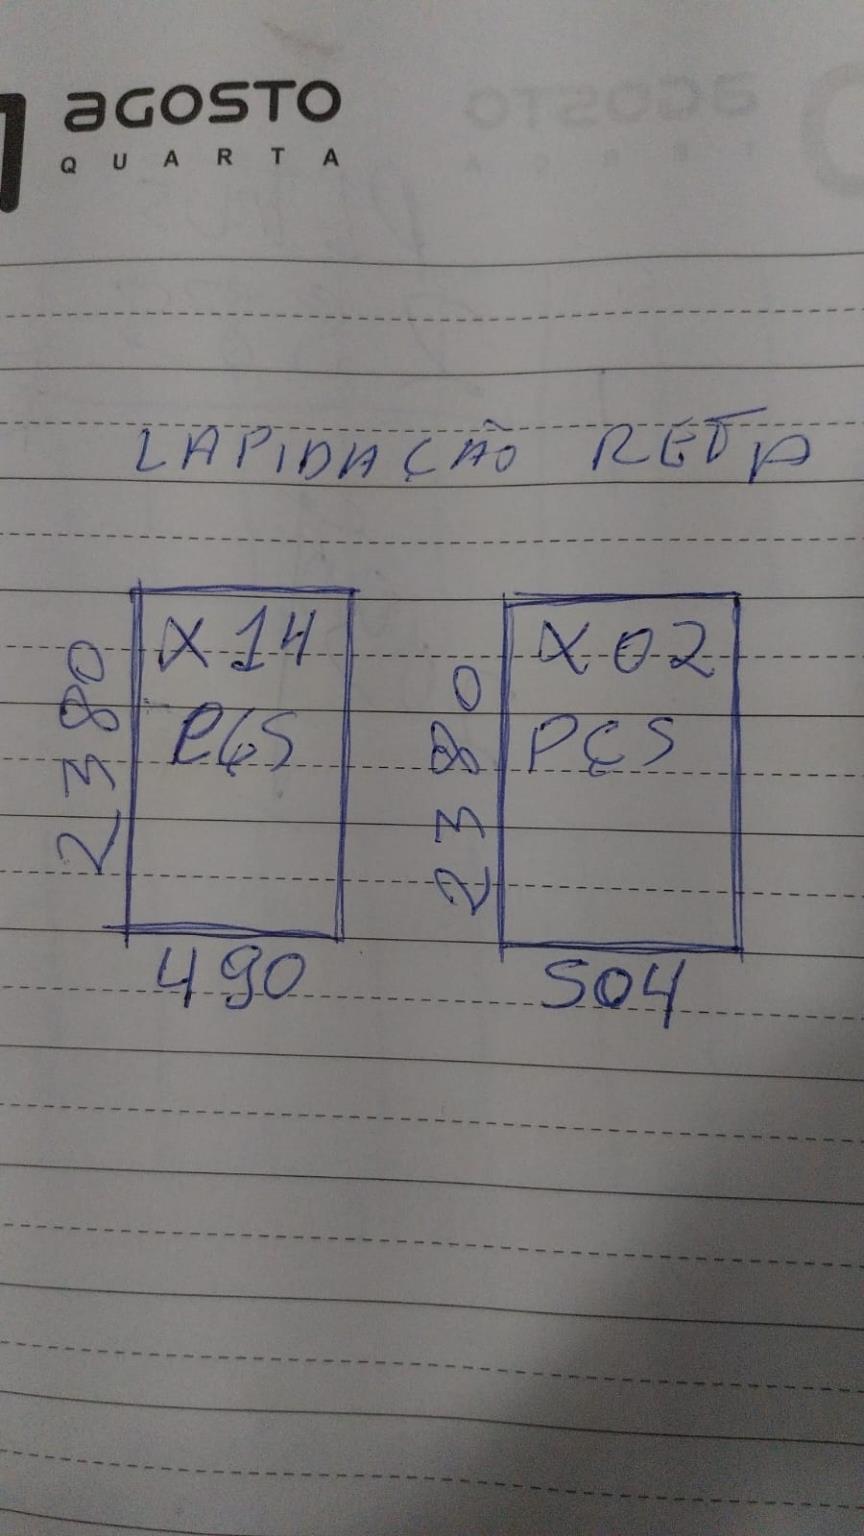 AGOSTO
QUARTA
LAPIDAÇÃO RETA
X14
PÇS
2380
490
X02
PÇS
2380
504